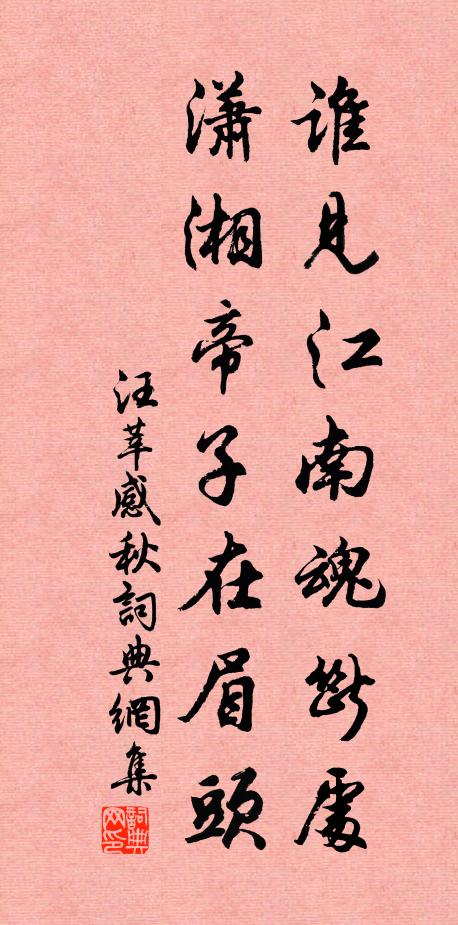 誰見江南魂斷處
瀟湘帝子在眉頭
汪莘感秋詞典網集
詞典网印